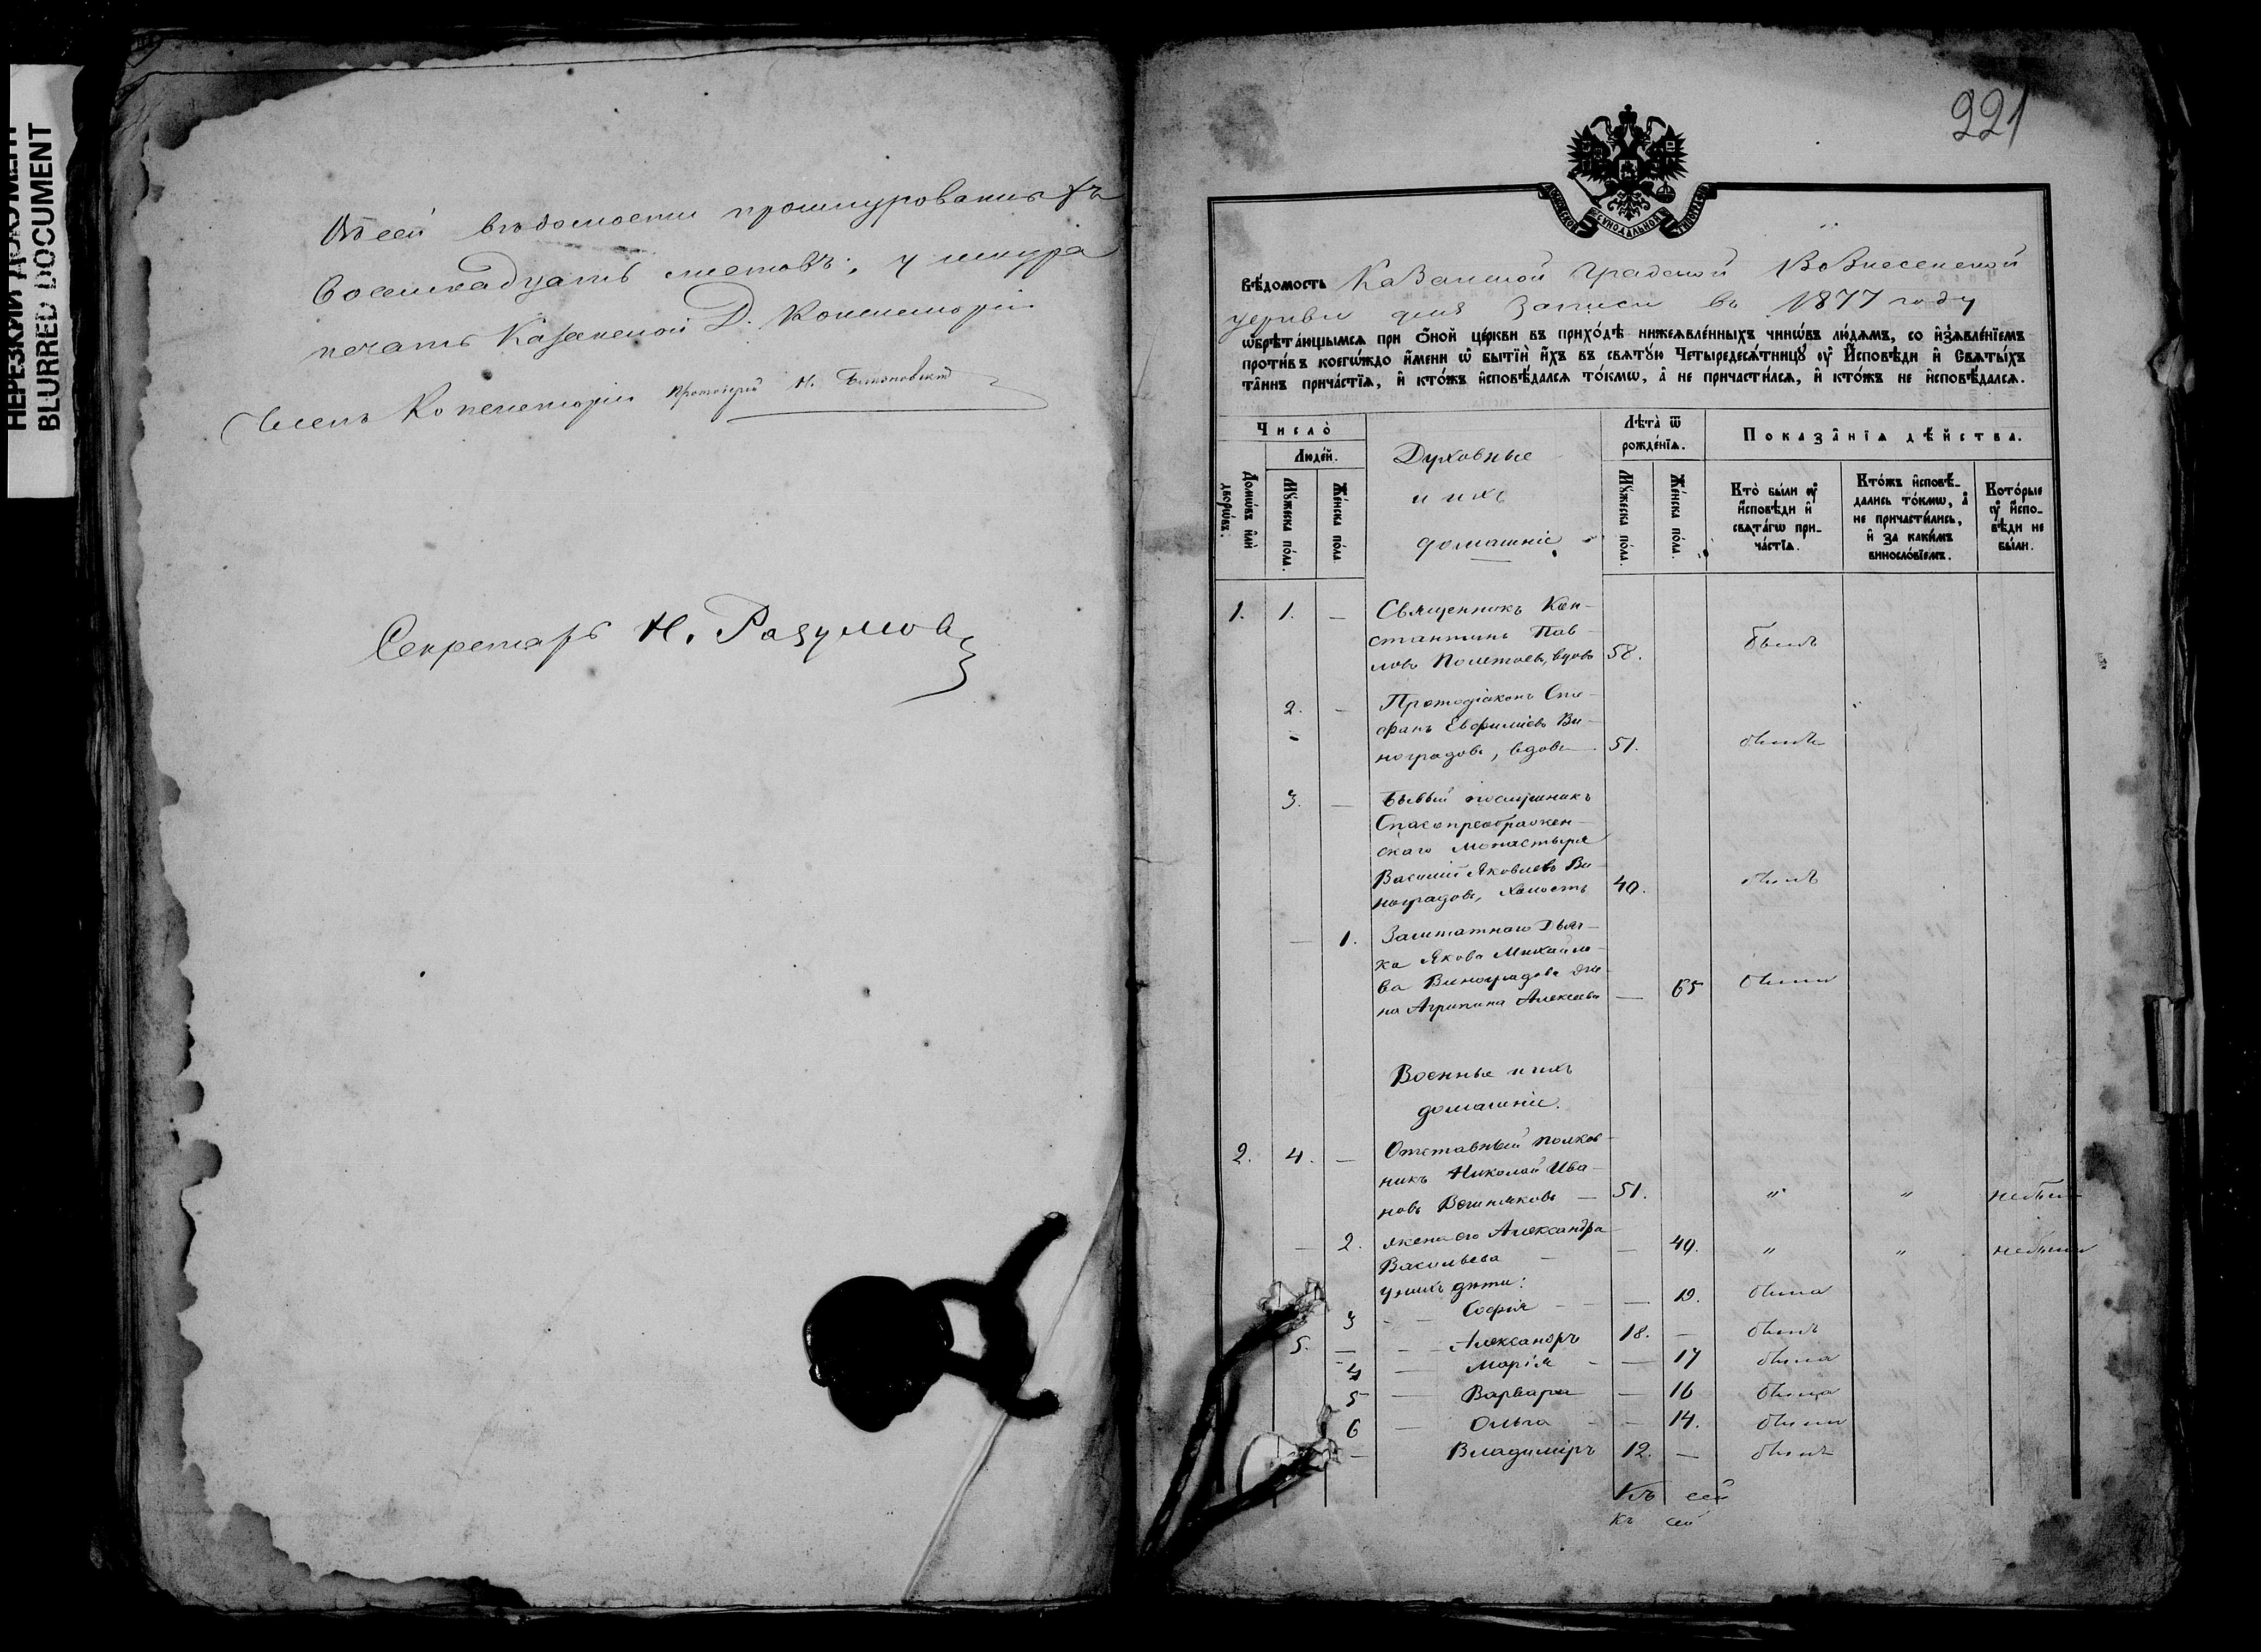 НЕРЕЗКИЙ ДОКУМЕНТ
BLURRED DOCUMENT
Въ сей вѣдомости прошнурованныхъ
восемнадцать листовъ; у шнура
печать Казанской Д. Консисторіи
Членъ Консисторіи Протоіерей
Секретарь Н. Разумовъ
221
МОСКОВСКОЙ СѴНОДАЛЬНОЙ ТИПОГРАФІИ
Вѣ́домость Казанской градской Вознесенской
церкви для записи въ 1877 году
ѡ҆брѣта́ющымсѧ при ѻ҆́ной це́ркви въ прихо́дѣ нижеѧвле́нныхъ чинѡ́въ лю́демъ, со и҆з̾ѧвле́нїемъ
проти́въ коегѡ́ждо и҆́мени ѡ҆ бытїѝ и҆́хъ въ свѧту́ю Четыредесѧ́тницꙋ ᲂу҆ И҆́сповѣди и҆ Свѧты́хъ
та̑инъ прича́стїѧ, и҆ кто́жъ и҆сповѣ́далсѧ то́кмѡ, а҆ не причасти́лсѧ, и҆ кто́жъ не и҆сповѣ́далсѧ.
Число̀
Люде́й.
Домѡ́въ и҆лѝ дворѡ́въ.
Мꙋ́жеска по́ла.
Же́нска по́ла.
Духовные
и ихъ
домашніе
Лѣ̑та ѿ рожде́нїѧ.
Мꙋ́жеска по́ла.
Же́нска по́ла.
Показа̑нїѧ дѣ́йства.
Кто̀ бы́ли ᲂу҆ и҆́сповѣди и҆ свѧта́гѡ прича́стїѧ.
Кто́жъ и҆сповѣ́дались то́кмѡ, а҆ не причасти́лись, и҆ за каки́мъ виносло́вїемъ.
Кото́рые ᲂу҆ и҆́сповѣди не бы́ли.
1. 1. — Священникъ Кон-
стантинъ Пав-
ловъ вдовъ 58. былъ
2. — Протодіаконъ Сте-
фанъ Евфиміевъ Ви-
ноградовъ, вдовъ — 51. былъ
3. — Бывый послушникъ
Спасопреображен-
скаго монастыря
Василій Яковлевъ Ви-
ноградовъ, холостъ 40. былъ
— 1. Заштатнаго Дьяч-
ка Якова Михайло-
ва Виноградова же-
на Агрипина Алексѣева — 65 была
Военные и ихъ
домашніе.
2. 4. — Отставный полков-
никъ Николай Ива-
новъ — 51. " " небылъ
— 2. жена его Александра
Васильева — — 40. " " небыла
у нихъ дѣти:
3 — — Софія — — 19. была
5. — — Александръ 18. — былъ
4 — Марія — — 17 была
5 — Варвара — 16 была
6 — Ольга — — 14. была
— Владиміръ 12. — былъ
Къ сей
къ сей